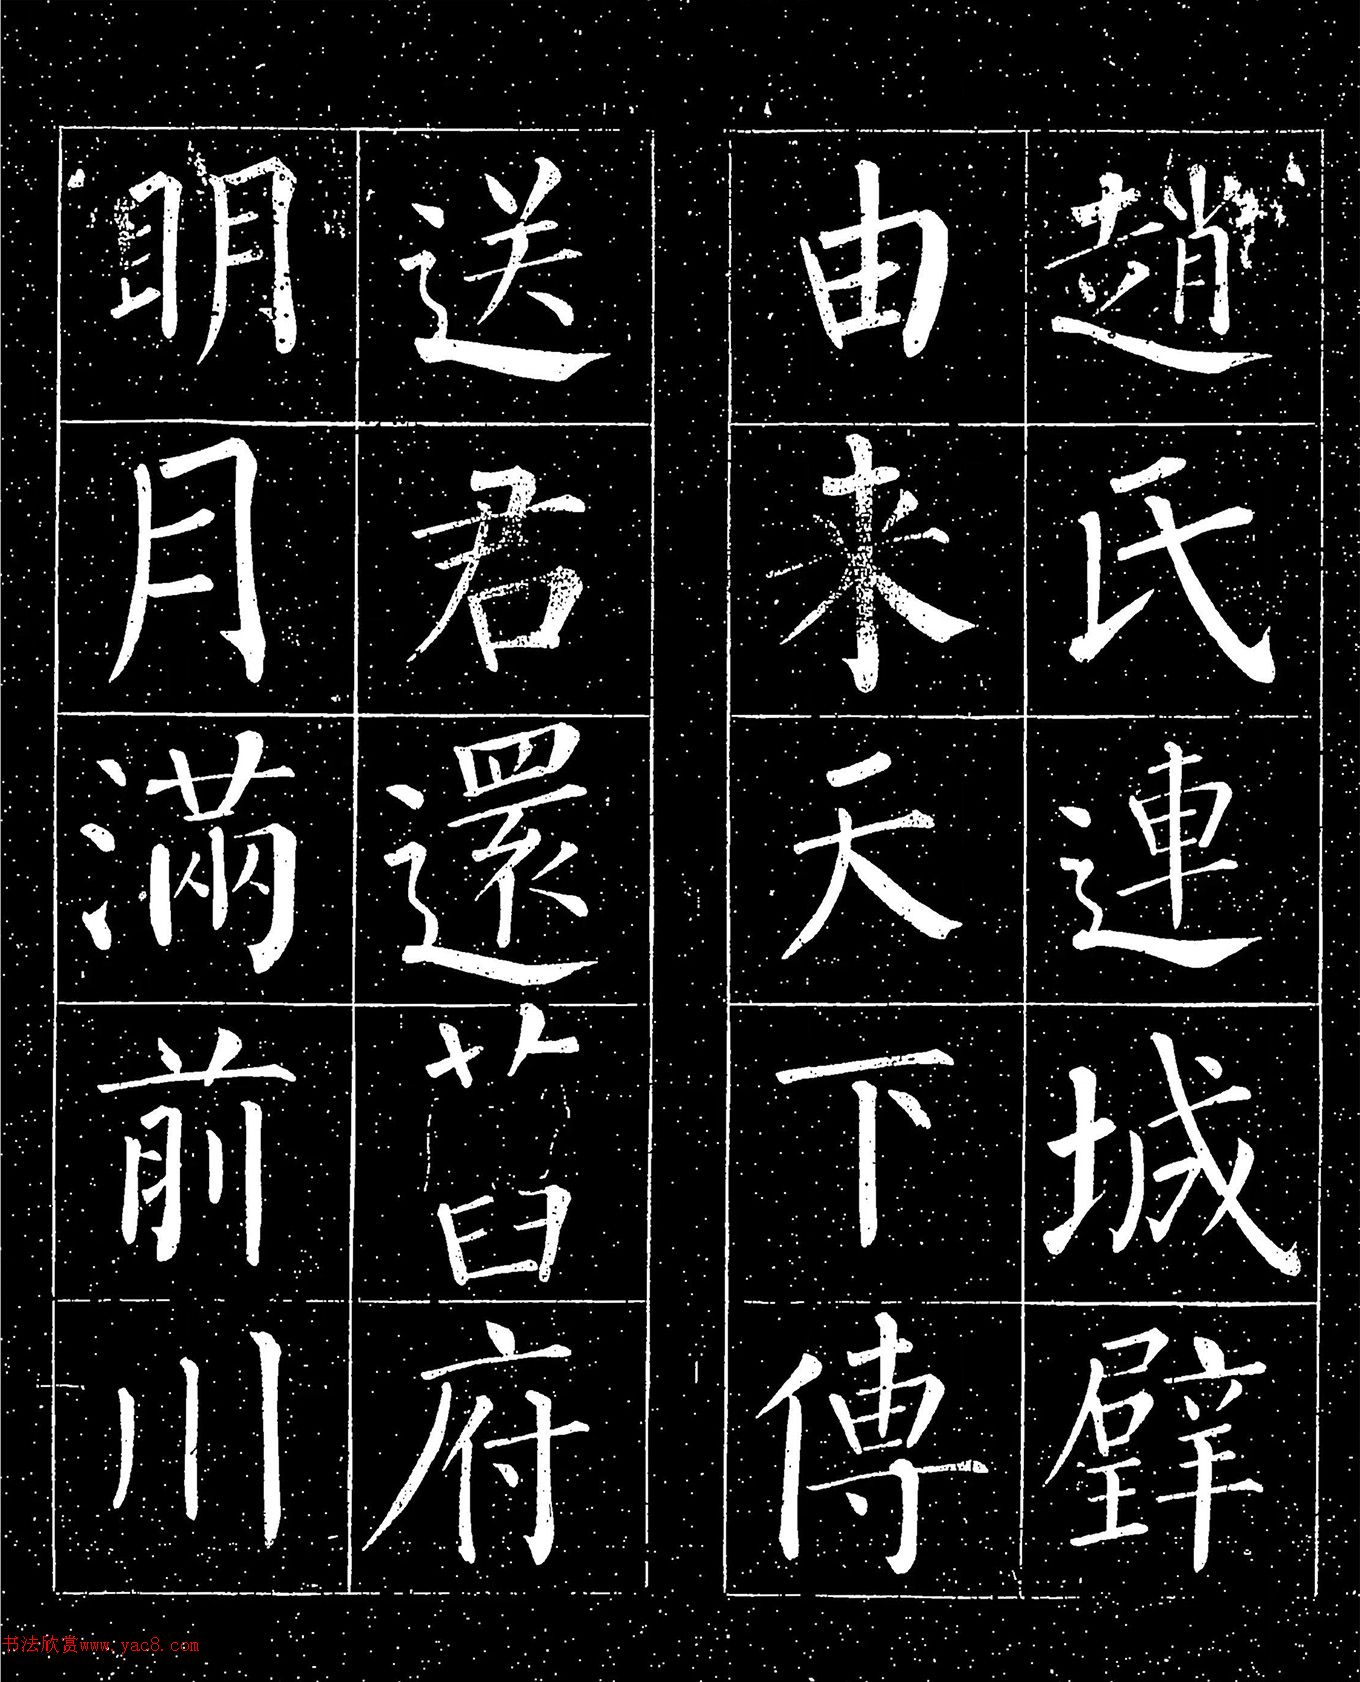 趙氏連城璧
由來天下傳
送君還舊府
明月滿前川
书法欣赏www.yac8.com